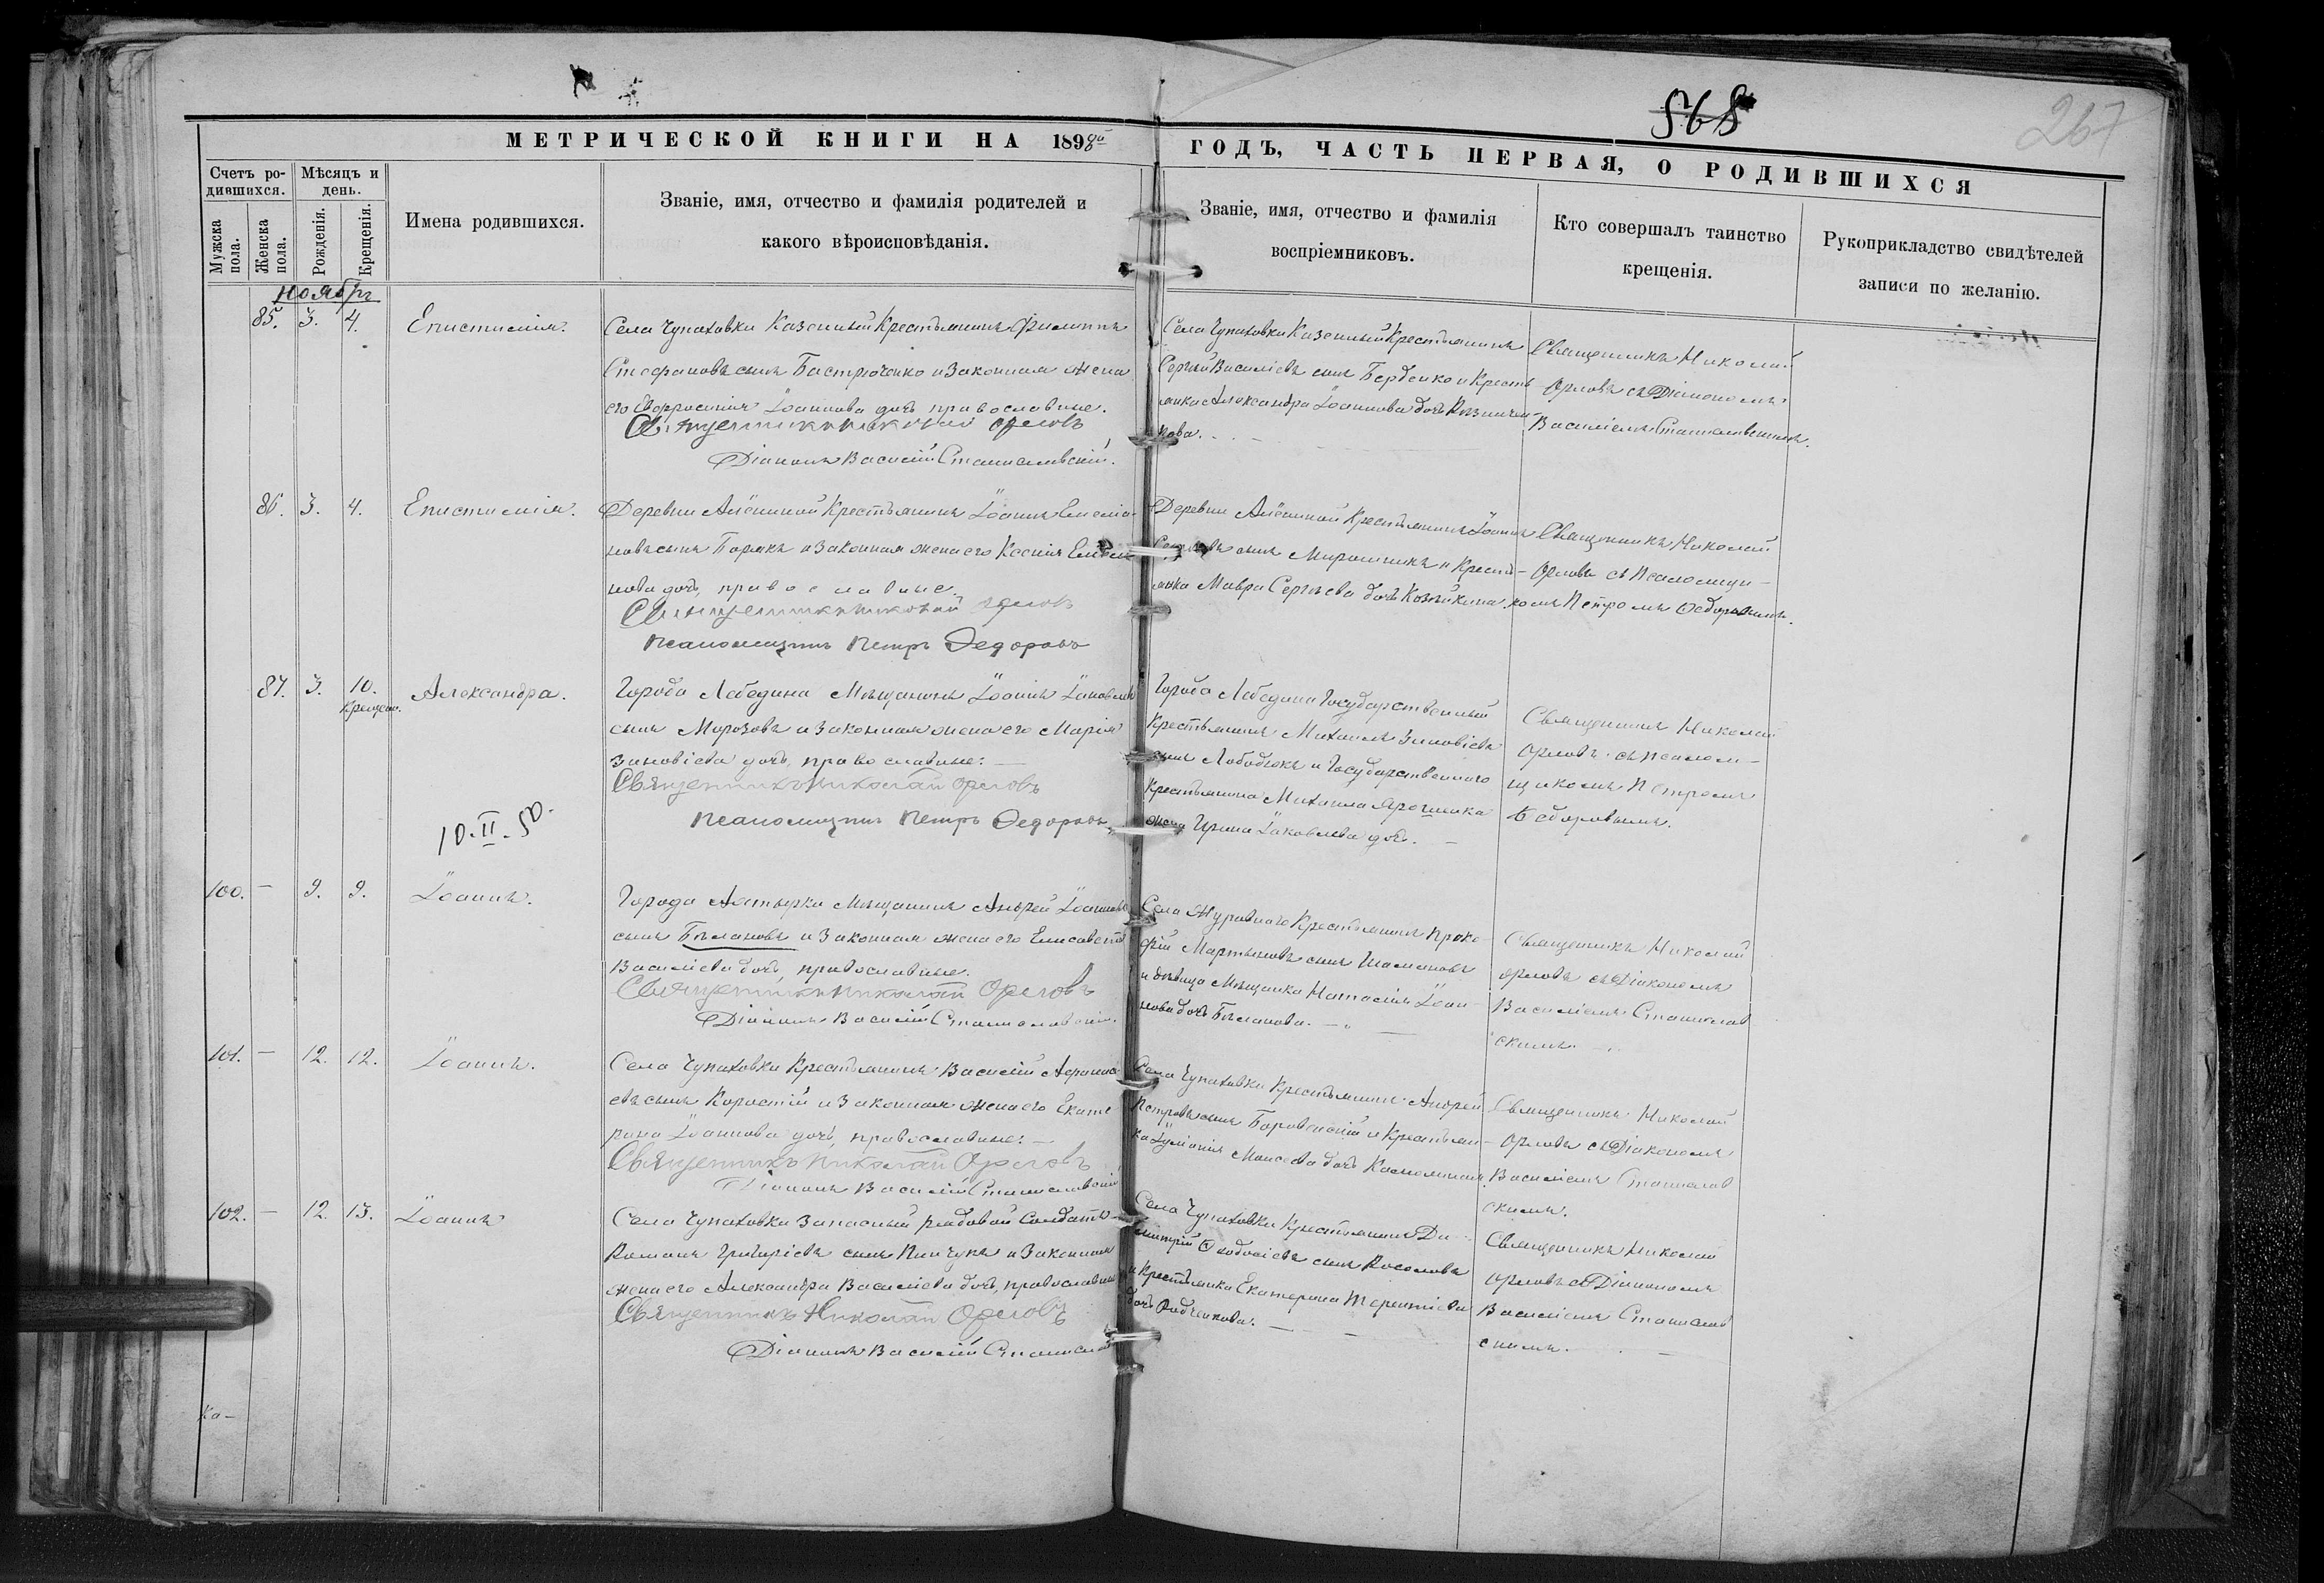 568
267
МЕТРИЧЕСКОЙ КНИГИ НА 1898й ГОДЪ, ЧАСТЬ ПЕРВАЯ, О РОДИВШИХСЯ
Счетъ ро-
дившихся.
Мужска
пола.
Женска
пола.
Мѣсяцъ и
день.
Рожденія.
Крещенія.
Имена родившихся.
Званіе, имя, отчество и фамилія родителей и
какого вѣроисповѣданія.
Званіе, имя, отчество и фамилія
воспріемниковъ.
Кто совершалъ таинство
крещенія.
Рукоприкладство свидѣтелей
записи по желанію.
Ноябрь
85. 3. 4. Епистимія.
Села Чупаховки Казенный Крестьянинъ Филиппъ
Стефановъ сынъ Бастрюченко и законная жена
его Евфросинія Іоаннова дочь православные.
Священникъ Николай Орловъ
Діаконъ Василій Станиславскій.
Села Чупаховки Казенный Крестьянинъ
Сергѣй Василіевъ сынъ Берденко и Кресть
янка Александра Іоаннова дочь
нова.
Священникъ Николай
Орловъ съ Діакономъ
Василіемъ Станиславскимъ.
86. 3. 4. Епистимія.
Деревни Алёшиной Крестьянинъ Іоаннъ Емелія-
новъ сынъ Борякъ и законная жена его Ксенія
нова дочь, православные.
Священникъ Николай Орловъ
Псаломщикъ Петръ Федоровъ
Деревни Алёшиной Крестьянинъ Іоаннъ
сынъ Мирошникъ и Кресть-
янка Мавра Сергѣева дочь Козѣйкина.
Священникъ Николай
Орловъ съ Псаломщи-
комъ Петромъ Ѳедоровымъ.
87. 3. 10. Крещена. Александра.
Города Лебедина Мѣщанинъ Іоаннъ Іаковлевъ
сынъ Морозовъ и законная жена его Марія
Зиновіева дочь, православные.
Священникъ Николай Орловъ
Псаломщикъ Петръ Федоровъ
10.II.50.
Города Лебедина Государственный
Крестьянинъ Михаилъ Зиновіевъ
сынъ Лободюкъ и Государственнаго
Крестьянина Михаила Ярошенка
жена Ирина Іаковлева дочь.
Священникъ Николай
Орловъ съ псалом-
щикомъ Петромъ
Ѳедоровымъ.
100. — 9. 9. Іоаннъ.
Города Ахтырки Мѣщанинъ Андрей Іоанновъ
сынъ Бѣлановъ и законная жена его Елисавета
Василіева дочь, православные.
Священникъ Николай Орловъ
Діаконъ Василій Станиславскій.
Села Журавнаго Крестьянинъ Проко-
фій Мартыновъ сынъ Шамановъ
и дѣвица Мѣщанка Наталія Іоан-
нова дочь Бѣланова.
Священникъ Николай
Орловъ съ Діакономъ
Василіемъ Станислав
скимъ.
101. — 12. 12. Іоаннъ.
Села Чупаховки Крестьянинъ Василій Афанась
евъ сынъ Коростій и законная жена его Екате
рина Іоаннова дочь, православные.
Священникъ Николай Орловъ
Діаконъ Василій Станиславскій
Села Чупаховки Крестьянинъ Андрей
Петровъ сынъ Боровенскій и Крестьян-
ка Іуліанія Моисеева дочь
Священникъ Николай
Орловъ съ Діакономъ
Василіемъ Станислав
скимъ.
102. — 12. 13. Іоаннъ
Села Чупаховки Запасный рядовой Солдатъ
Романъ Григоріевъ сынъ Пинчукъ и законная
жена его Александра Василіева дочь, православные
Священникъ Николай Орловъ
Діаконъ Василій Станислав
Села Чупаховки Крестьянинъ Ди-
митрій Ѳеодосіевъ сынъ Косоловъ
и Крестьянка Екатерина Терентіева
дочь Радченкова.
Священникъ Николай
Орловъ съ Діакономъ
Василіемъ Станислав
скимъ.
Ко-